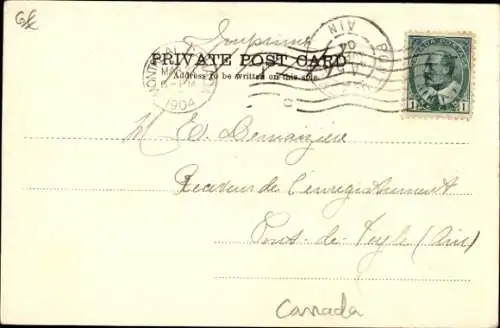 G/2
Imprimé
PRIVATE POST CARD
Address to be written on this side.
MONTREAL
MAR
PM
1904
AIN
04
1 1
M E. Demaizière
Receveur de l'enregistrement
Pont-de-Veyle (Ain)
Canada